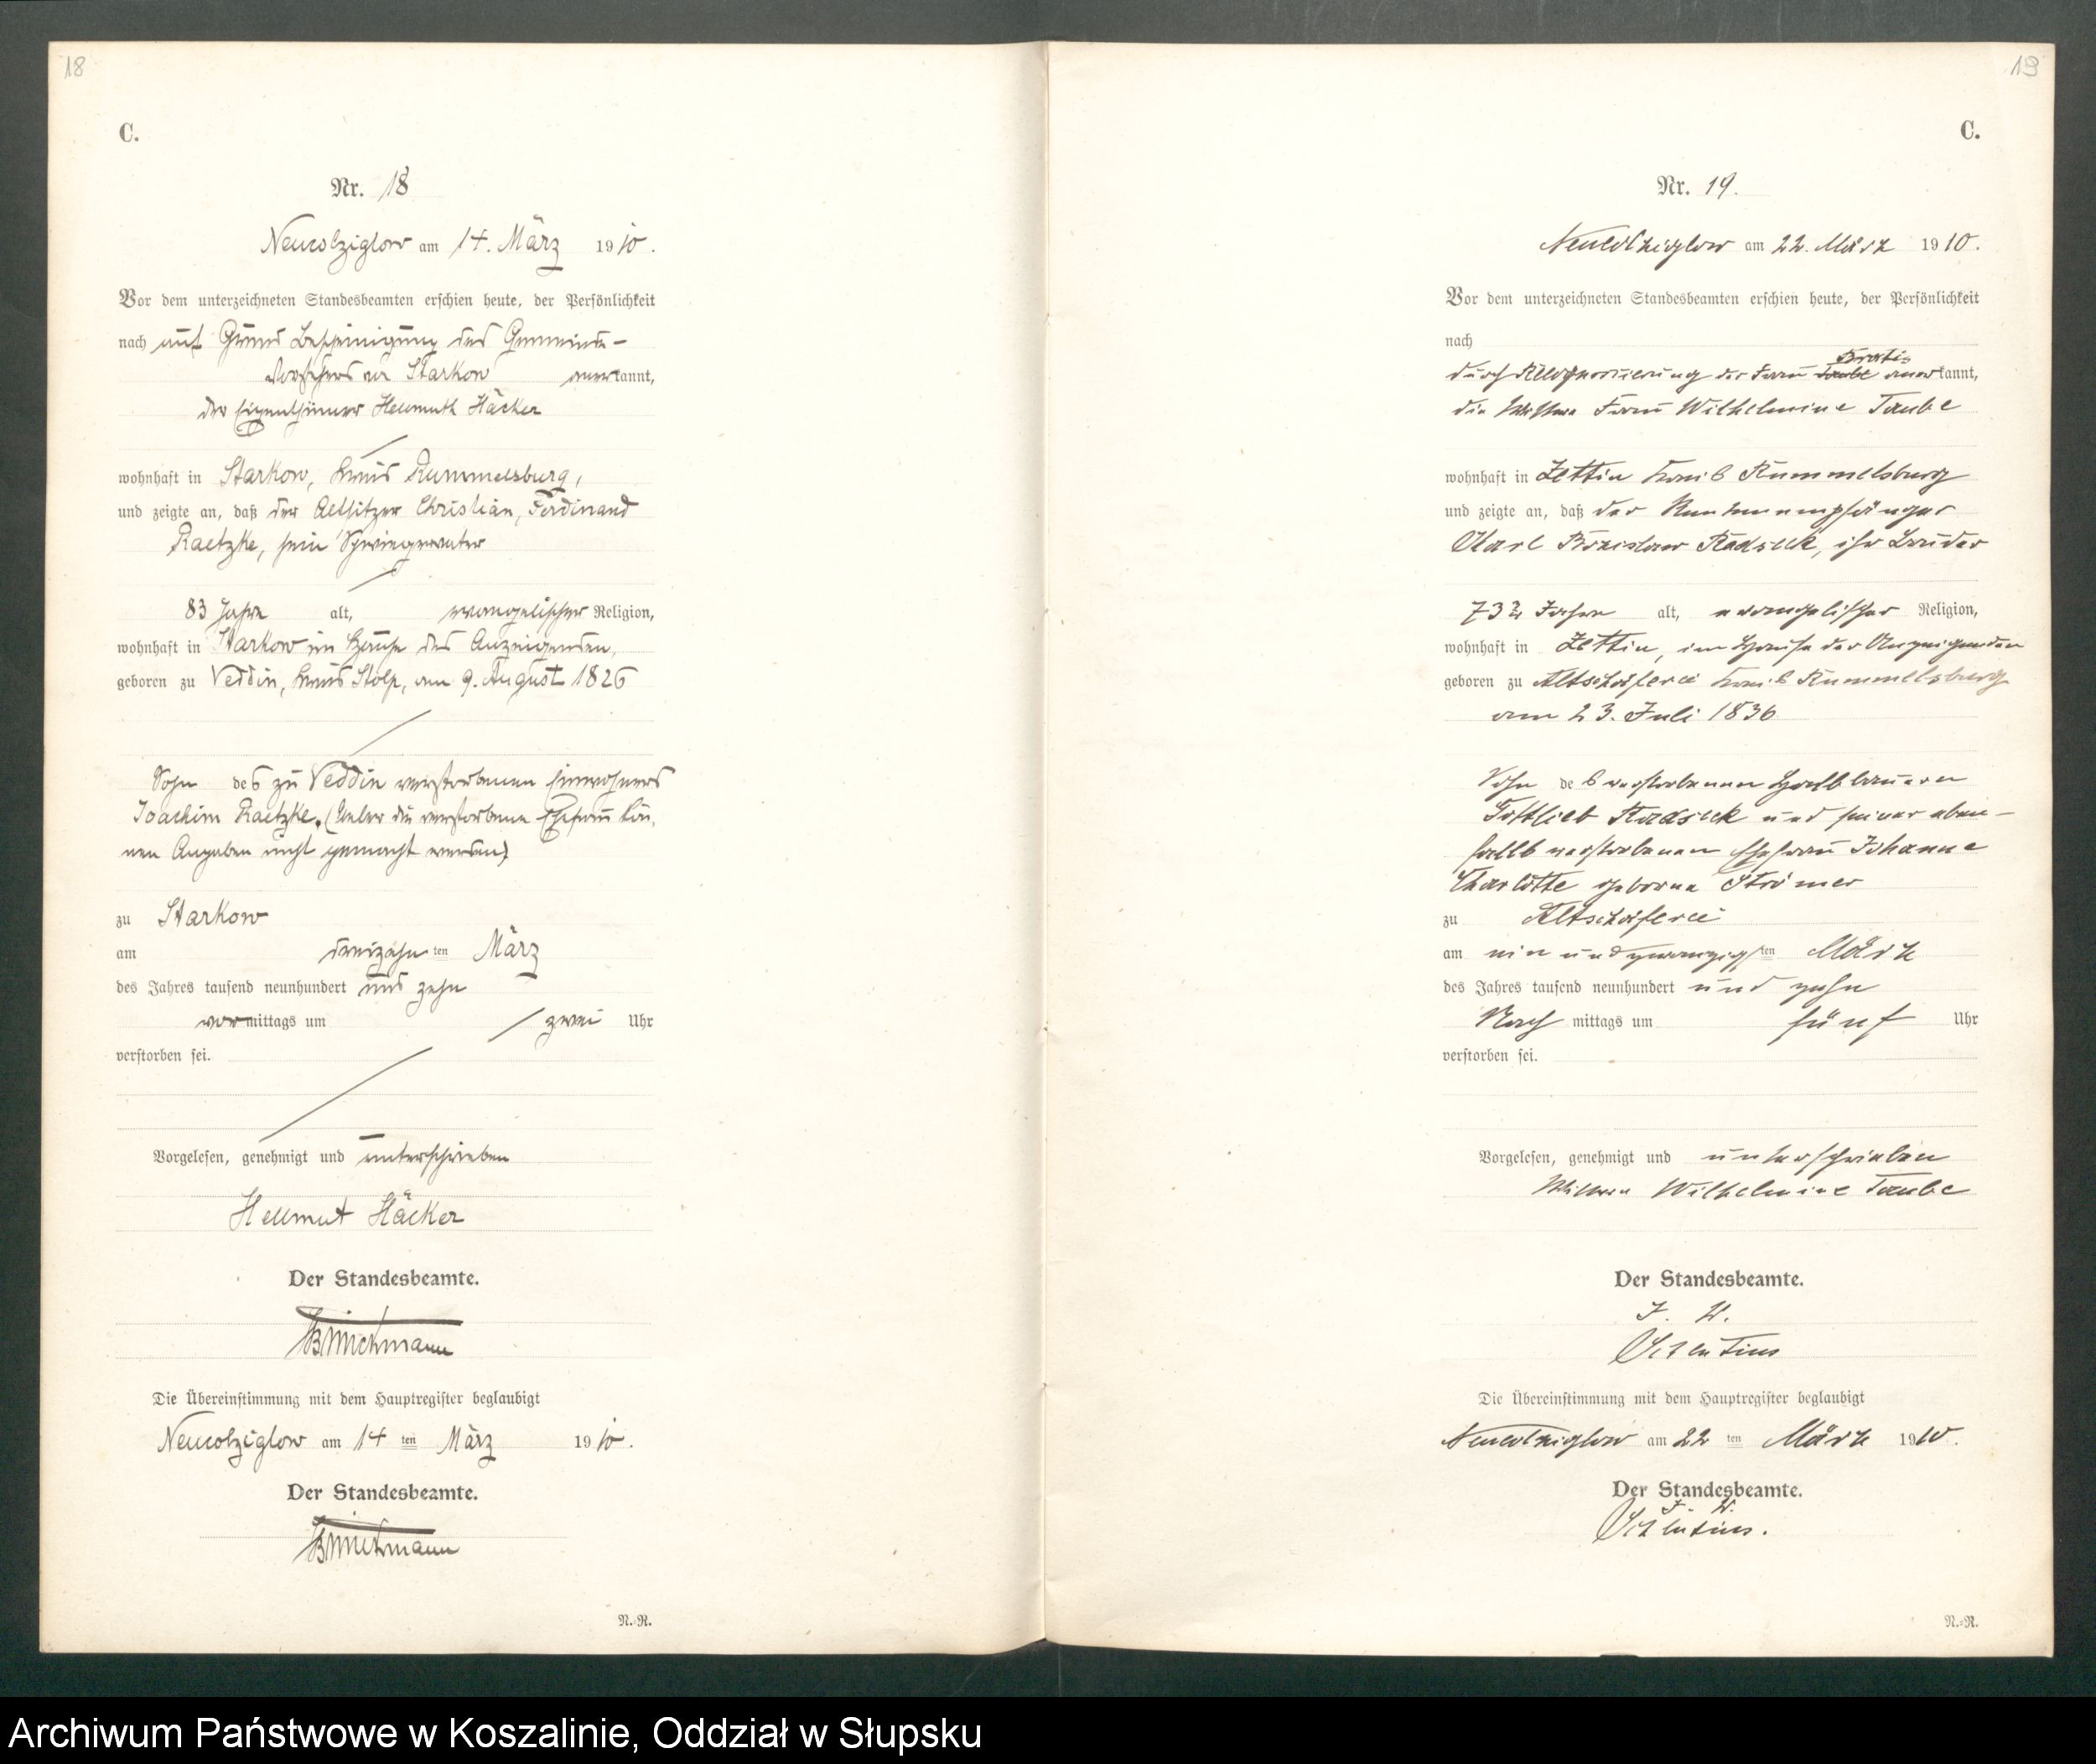 18
C.
Nr. 18
Neucolziglow am 14. März 1910.
Vor dem unterzeichneten Standesbeamten erschien heute, der Persönlichkeit
nach auf Grund Bescheinigung des Gemeinde-
vorstehers in Starkow anerkannt,
der Eigenthümer Hellmuth Häcker
wohnhaft in Starkow, Kreis Rummelsburg,
und zeigte an, daß der Altsitzer Christian, Ferdinand
Raetzke, sein Schwiegervater
83 Jahre alt, evangelischer Religion,
wohnhaft in Starkow im Hause des Anzeigenden,
geboren zu Veddin, Kreis Stolp, am 9. August 1826
Sohn des zu Veddin verstorbenen Einwohners
Joachim Raetzke. (Ueber die verstorbene Ehefrau kön-
nen Angaben nicht gemacht werden)
zu Starkow
am dreizehnten März
des Jahres tausend neunhundert und zehn
vormittags um zwei Uhr
verstorben sei.
Vorgelesen, genehmigt und unterschrieben
Hellmut Häcker
Der Standesbeamte.
Die Übereinstimmung mit dem Hauptregister beglaubigt
Neucolziglow am 14ten März 1910.
Der Standesbeamte.
N.-R.
19
C.
Nr. 19.
Neucolziglow am 22. März 1910.
Vor dem unterzeichneten Standesbeamten erschien heute, der Persönlichkeit
nach
durch Rekognoszierung der Frau anerkannt,
die Witwe Frau Wilhelmine Taube
wohnhaft in Zettin Kreis Rummelsburg
und zeigte an, daß der Rentenempfänger
Karl Radseck, ihr Bruder
73½ Jahre alt, evangelischer Religion,
wohnhaft in Zettin, im Hause der Anzeigenden
geboren zu Altschäferei Kreis Rummelsburg
am 23. Juli 1836
Sohn des verstorbenen Halbbauern
Gottlieb Radseck und seiner eben-
falls verstorbenen Ehefrau Johanne
Charlotte geborne Strömer
zu Altschäferei
am ein und zwanzigsten März
des Jahres tausend neunhundert und zehn
Nachmittags um fünf Uhr
verstorben sei.
Vorgelesen, genehmigt und unterschrieben
Witwe Wilhelmine Taube
Der Standesbeamte.
J. V.
Die Übereinstimmung mit dem Hauptregister beglaubigt
Neucolziglow am 22ten März 1910.
Der Standesbeamte.
J. V.
N.-R.
Archiwum Państwowe w Koszalinie, Oddział w Słupsku